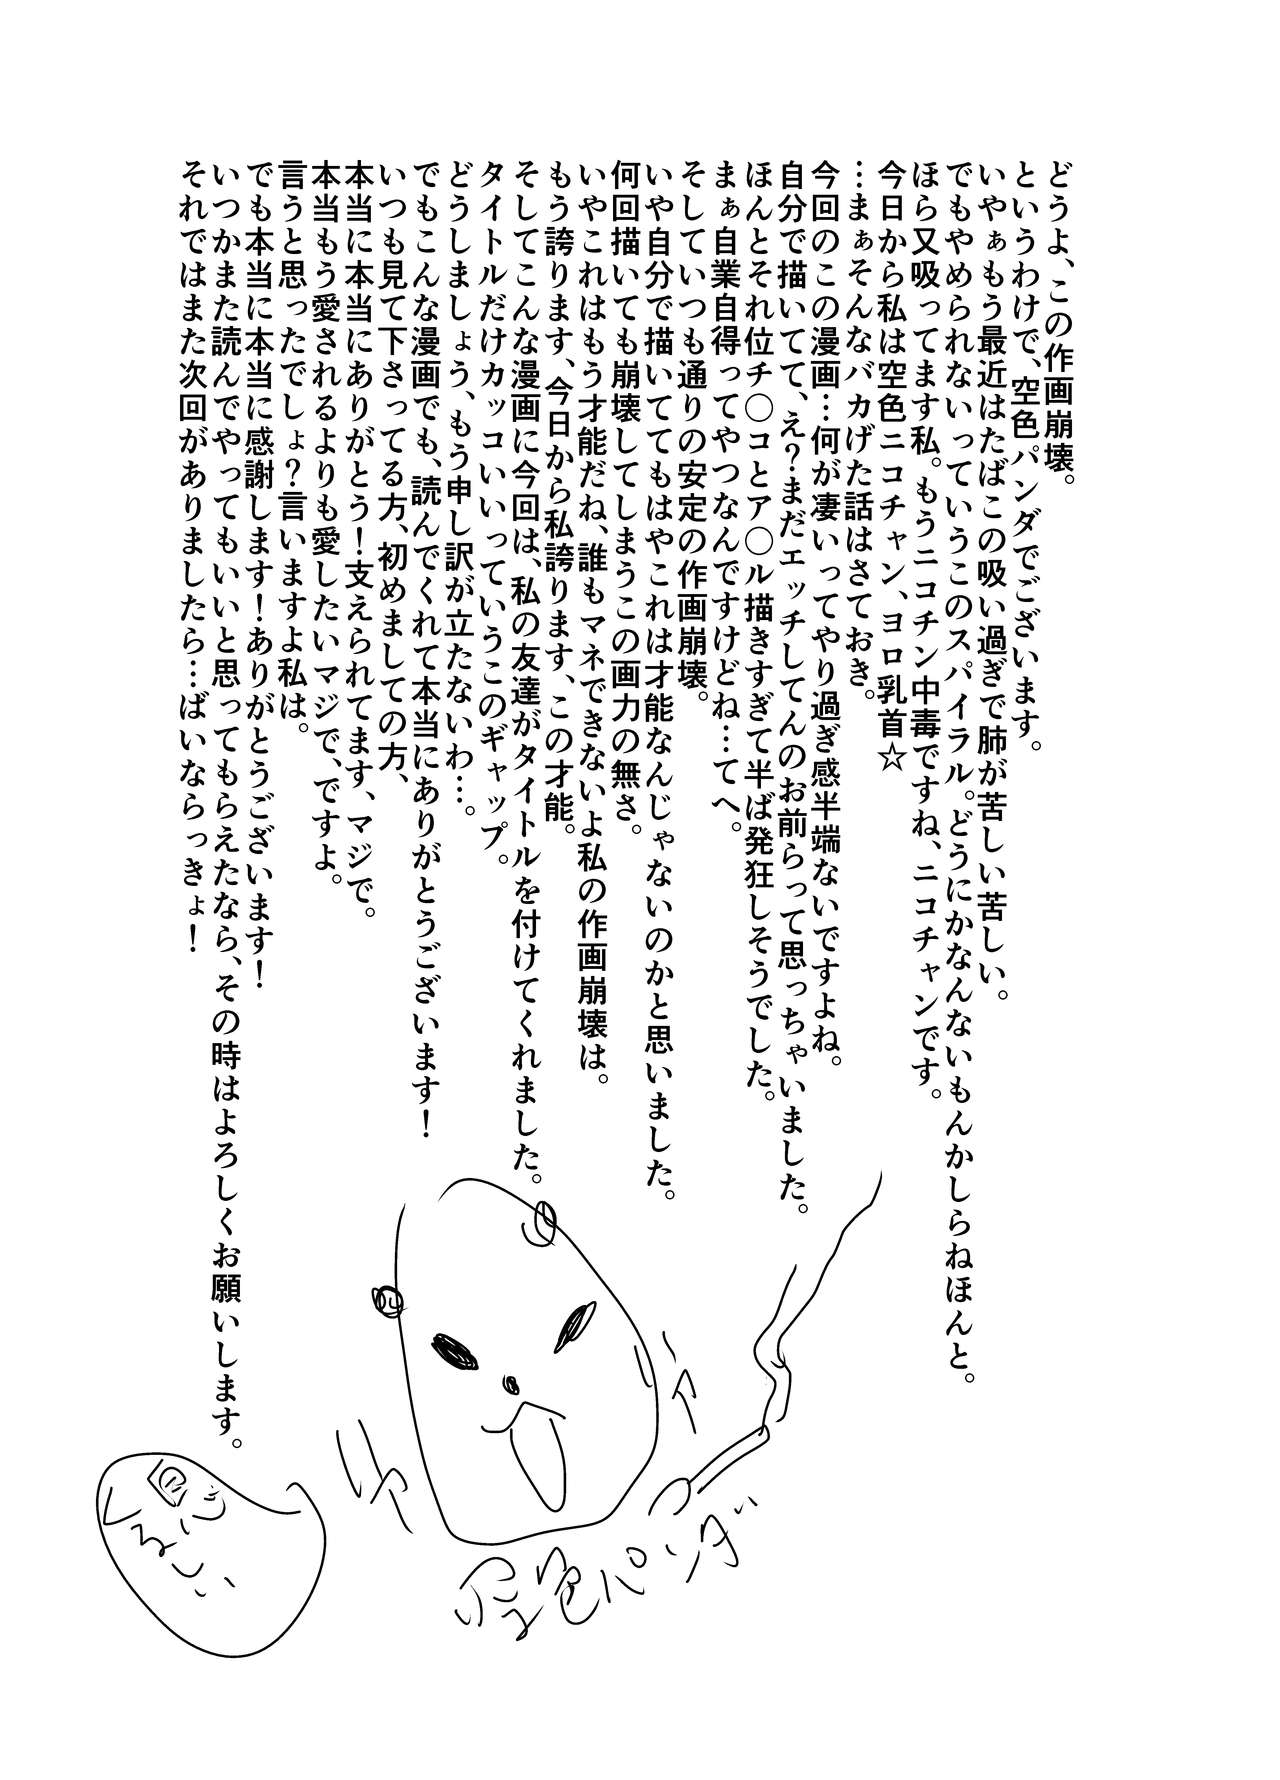 どうよ、この作画崩壊。
というわけで、空色パンダでございます。
いやぁもう最近はたばこの吸い過ぎで肺が苦しい苦しい。
でもやめられないっていうこのスパイラル。どうにかなんないもんかしらねほんと。
ほら又吸ってます私。もうニコチン中毒ですね、ニコチャンです。
今日から私は空色ニコチャン、ヨロ乳首☆
…まぁそんなバカげた話はさておき。
今回のこの漫画…何が凄いってやり過ぎ感半端ないですよね。
自分で描いてて、え？まだエッチしてんのお前らって思っちゃいました。
ほんとそれ位チ〇コとア〇ル描きすぎて半ば発狂しそうでした。
まぁ自業自得ってやつなんですけどね…てへ。
そしていつも通りの安定の作画崩壊。
いや自分で描いててもはやこれは才能なんじゃないのかと思いました。
何回描いても崩壊してしまうこの画力の無さ。
いやこれはもう才能だね、誰もマネできないよ私の作画崩壊は。
もう誇ります、今日から私誇ります、この才能。
そしてこんな漫画に今回は、私の友達がタイトルを付けてくれました。
タイトルだけカッコいいっていうこのギャップ。
どうしましょう、もう申し訳が立たないわ…。
でもこんな漫画でも、読んでくれて本当にありがとうございます！
いつも見て下さってる方、初めましての方、
本当に本当にありがとう！支えられてます、マジで。
本当もう愛されるよりも愛したいマジで、ですよ。
言うと思ったでしょ？言いますよ私は。
でも本当に本当に感謝します！ありがとうございます！
いつかまた読んでやってもいいと思ってもらえたなら、その時はよろしくお願いします。
それではまた次回がありましたら…ばいならっきょ！
空色パンダ
息
くるしい